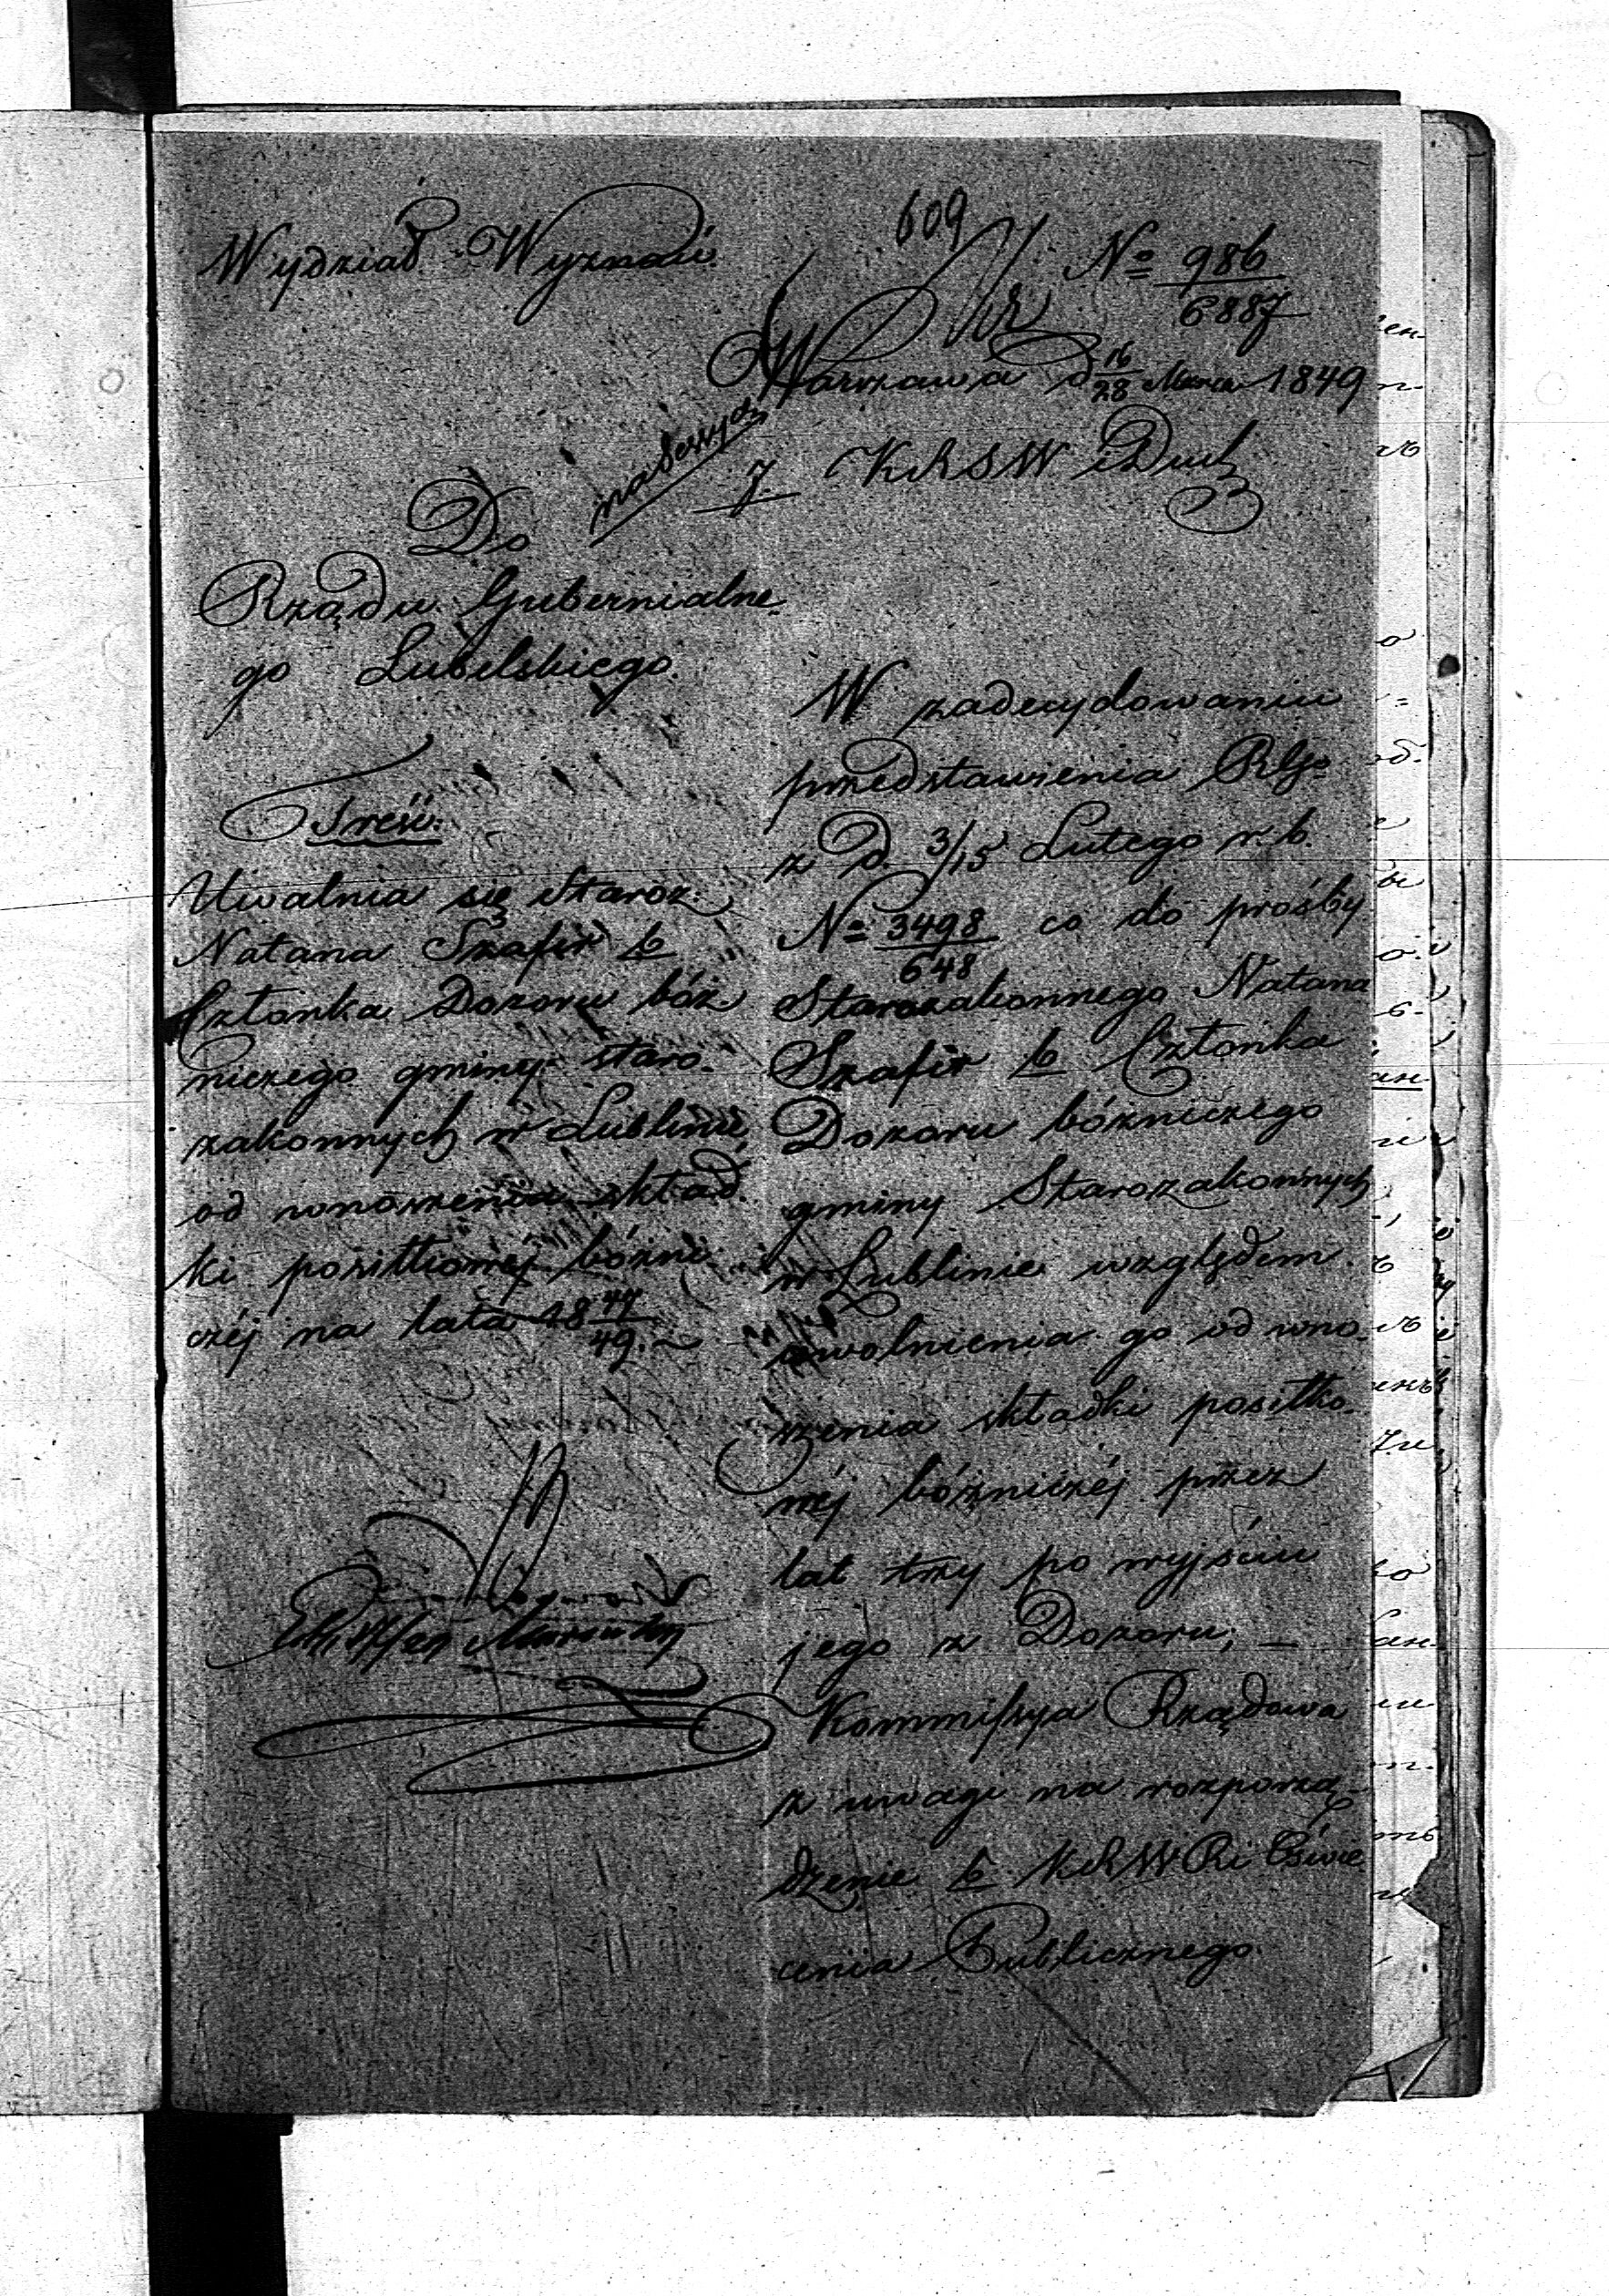 609
Wydział Wyznań.
No 986/6887
Warszawa d 16/28 Marca 1849
J. KRSW i Duch
Do
Rządu Gubernialne-
go Lubelskiego.
Treść.
Uwalnia się Staroz.
Natana Szafir b
Członka Dozoru bóż
niczego gminy staro-
zakonnych w Lublinie,
od wnoszenia skład
ki posiłkowej bóżni
czéj na lata 18 47/49.
W zadecydowaniu
przedstawienia RGo
z d. 3/15 Lutego r. b.
No 3498/648 co do prośby
Starozakonnego Natana
Szafir b Członka
Dozoru bóżniczego
gminy Starozakonnych
w Lublinie względem
uwolnienia go od wno-
szenia składki posiłko-
wéj bóżniczéj przez
lat trzy po wyjściu
jego z Dozoru, —
Kommissya Rządowa
z uwagi na rozporzą-
dzenie b KRWR i Oświe
cenia Publicznego